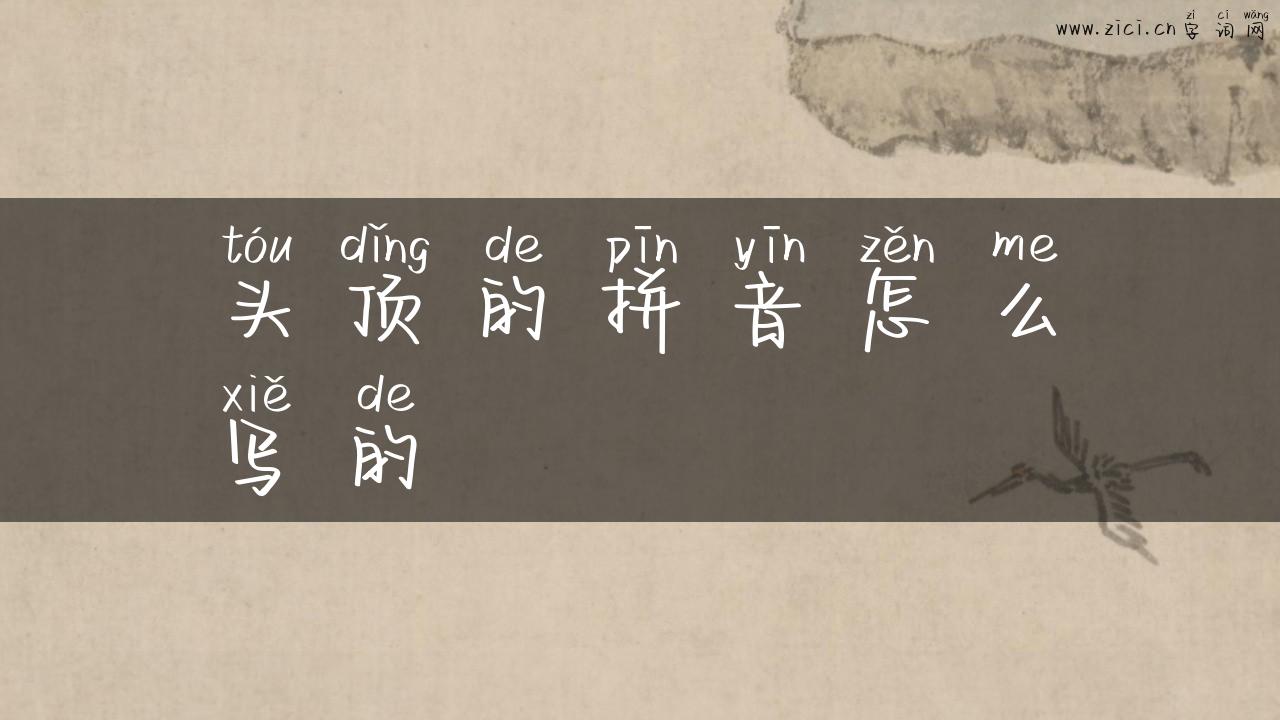 zì cí wǎng
www.zici.cn 字词网
tóu dǐng de pīn yīn zěn me
头顶的拼音怎么
xiě de
写的